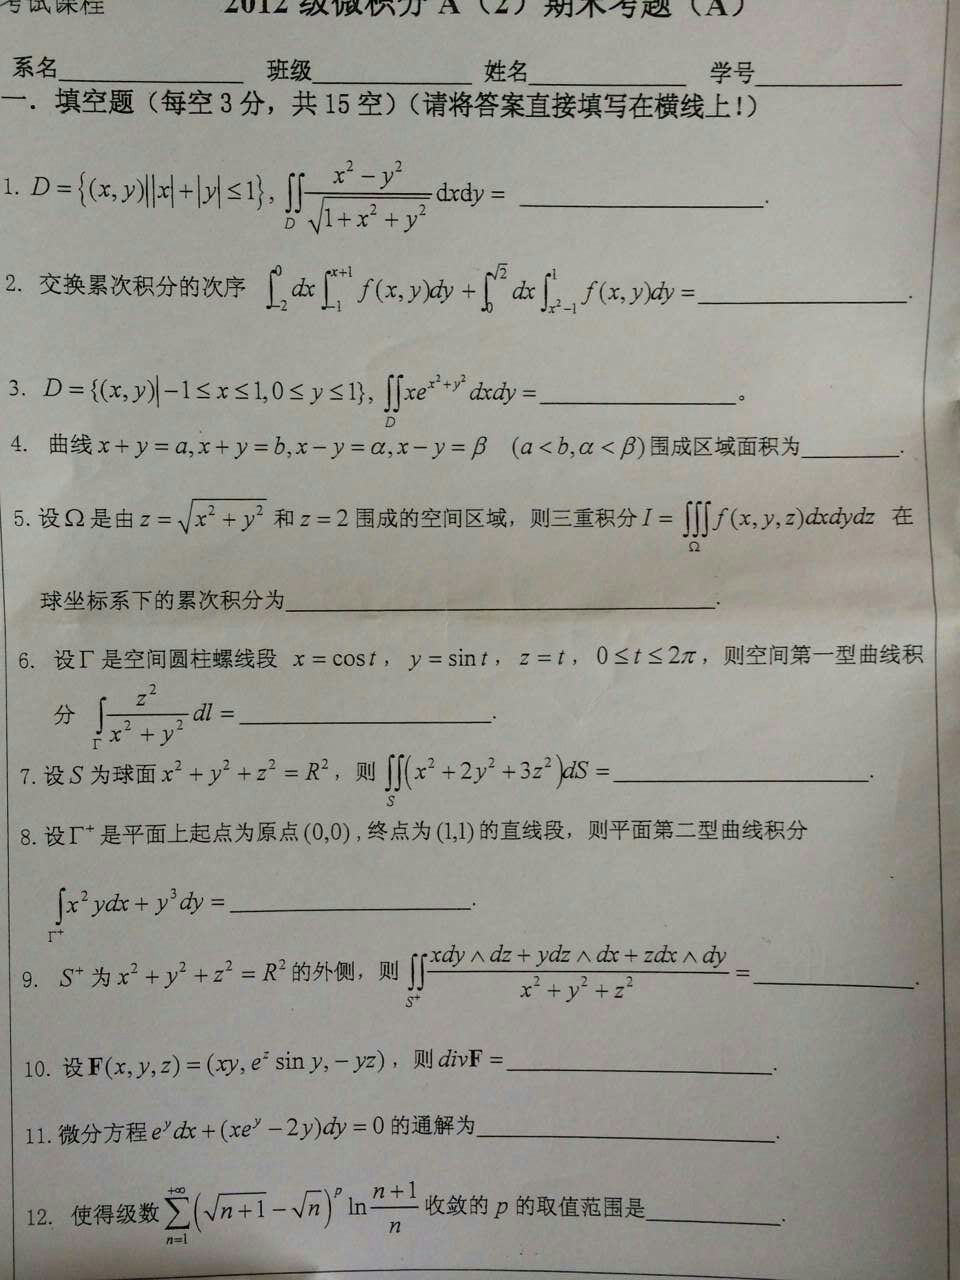 考试课程 2012 级微积分 A（2）期末考题（A）
系名____________ 班级____________ 姓名____________ 学号____________
一．填空题（每空 3 分，共 15 空）（请将答案直接填写在横线上！）
1. D = {(x, y)||x| + |y| ≤ 1}, ∬_D (x² − y²)/√(1 + x² + y²) dxdy = ____________.
2. 交换累次积分的次序 ∫_{−2}^{0} dx ∫_{−1}^{x+1} f(x, y)dy + ∫_{0}^{√2} dx ∫_{x²−1}^{1} f(x, y)dy = ____________.
3. D = {(x, y)| −1 ≤ x ≤ 1, 0 ≤ y ≤ 1}, ∬_D xe^{x²+y²} dxdy = ____________。
4. 曲线 x + y = a, x + y = b, x − y = α, x − y = β (a < b, α < β) 围成区域面积为____________.
5. 设 Ω 是由 z = √(x² + y²) 和 z = 2 围成的空间区域，则三重积分 I = ∭_Ω f(x, y, z)dxdydz 在
球坐标系下的累次积分为____________.
6. 设 Γ 是空间圆柱螺线段 x = cos t， y = sin t， z = t， 0 ≤ t ≤ 2π，则空间第一型曲线积
分 ∫_Γ z²/(x² + y²) dl = ____________.
7. 设 S 为球面 x² + y² + z² = R²，则 ∬_S (x² + 2y² + 3z²)dS = ____________.
8. 设 Γ⁺ 是平面上起点为原点 (0,0)，终点为 (1,1) 的直线段，则平面第二型曲线积分
∫_{Γ⁺} x²ydx + y³dy = ____________.
9. S⁺ 为 x² + y² + z² = R² 的外侧，则 ∬_{S⁺} (xdy ∧ dz + ydz ∧ dx + zdx ∧ dy)/(x² + y² + z²) = ____________.
10. 设 F(x, y, z) = (xy, e^z sin y, − yz)，则 divF = ____________.
11. 微分方程 e^y dx + (xe^y − 2y)dy = 0 的通解为____________.
12. 使得级数 ∑_{n=1}^{+∞} (√(n+1) − √n)^p ln (n+1)/n 收敛的 p 的取值范围是____________.